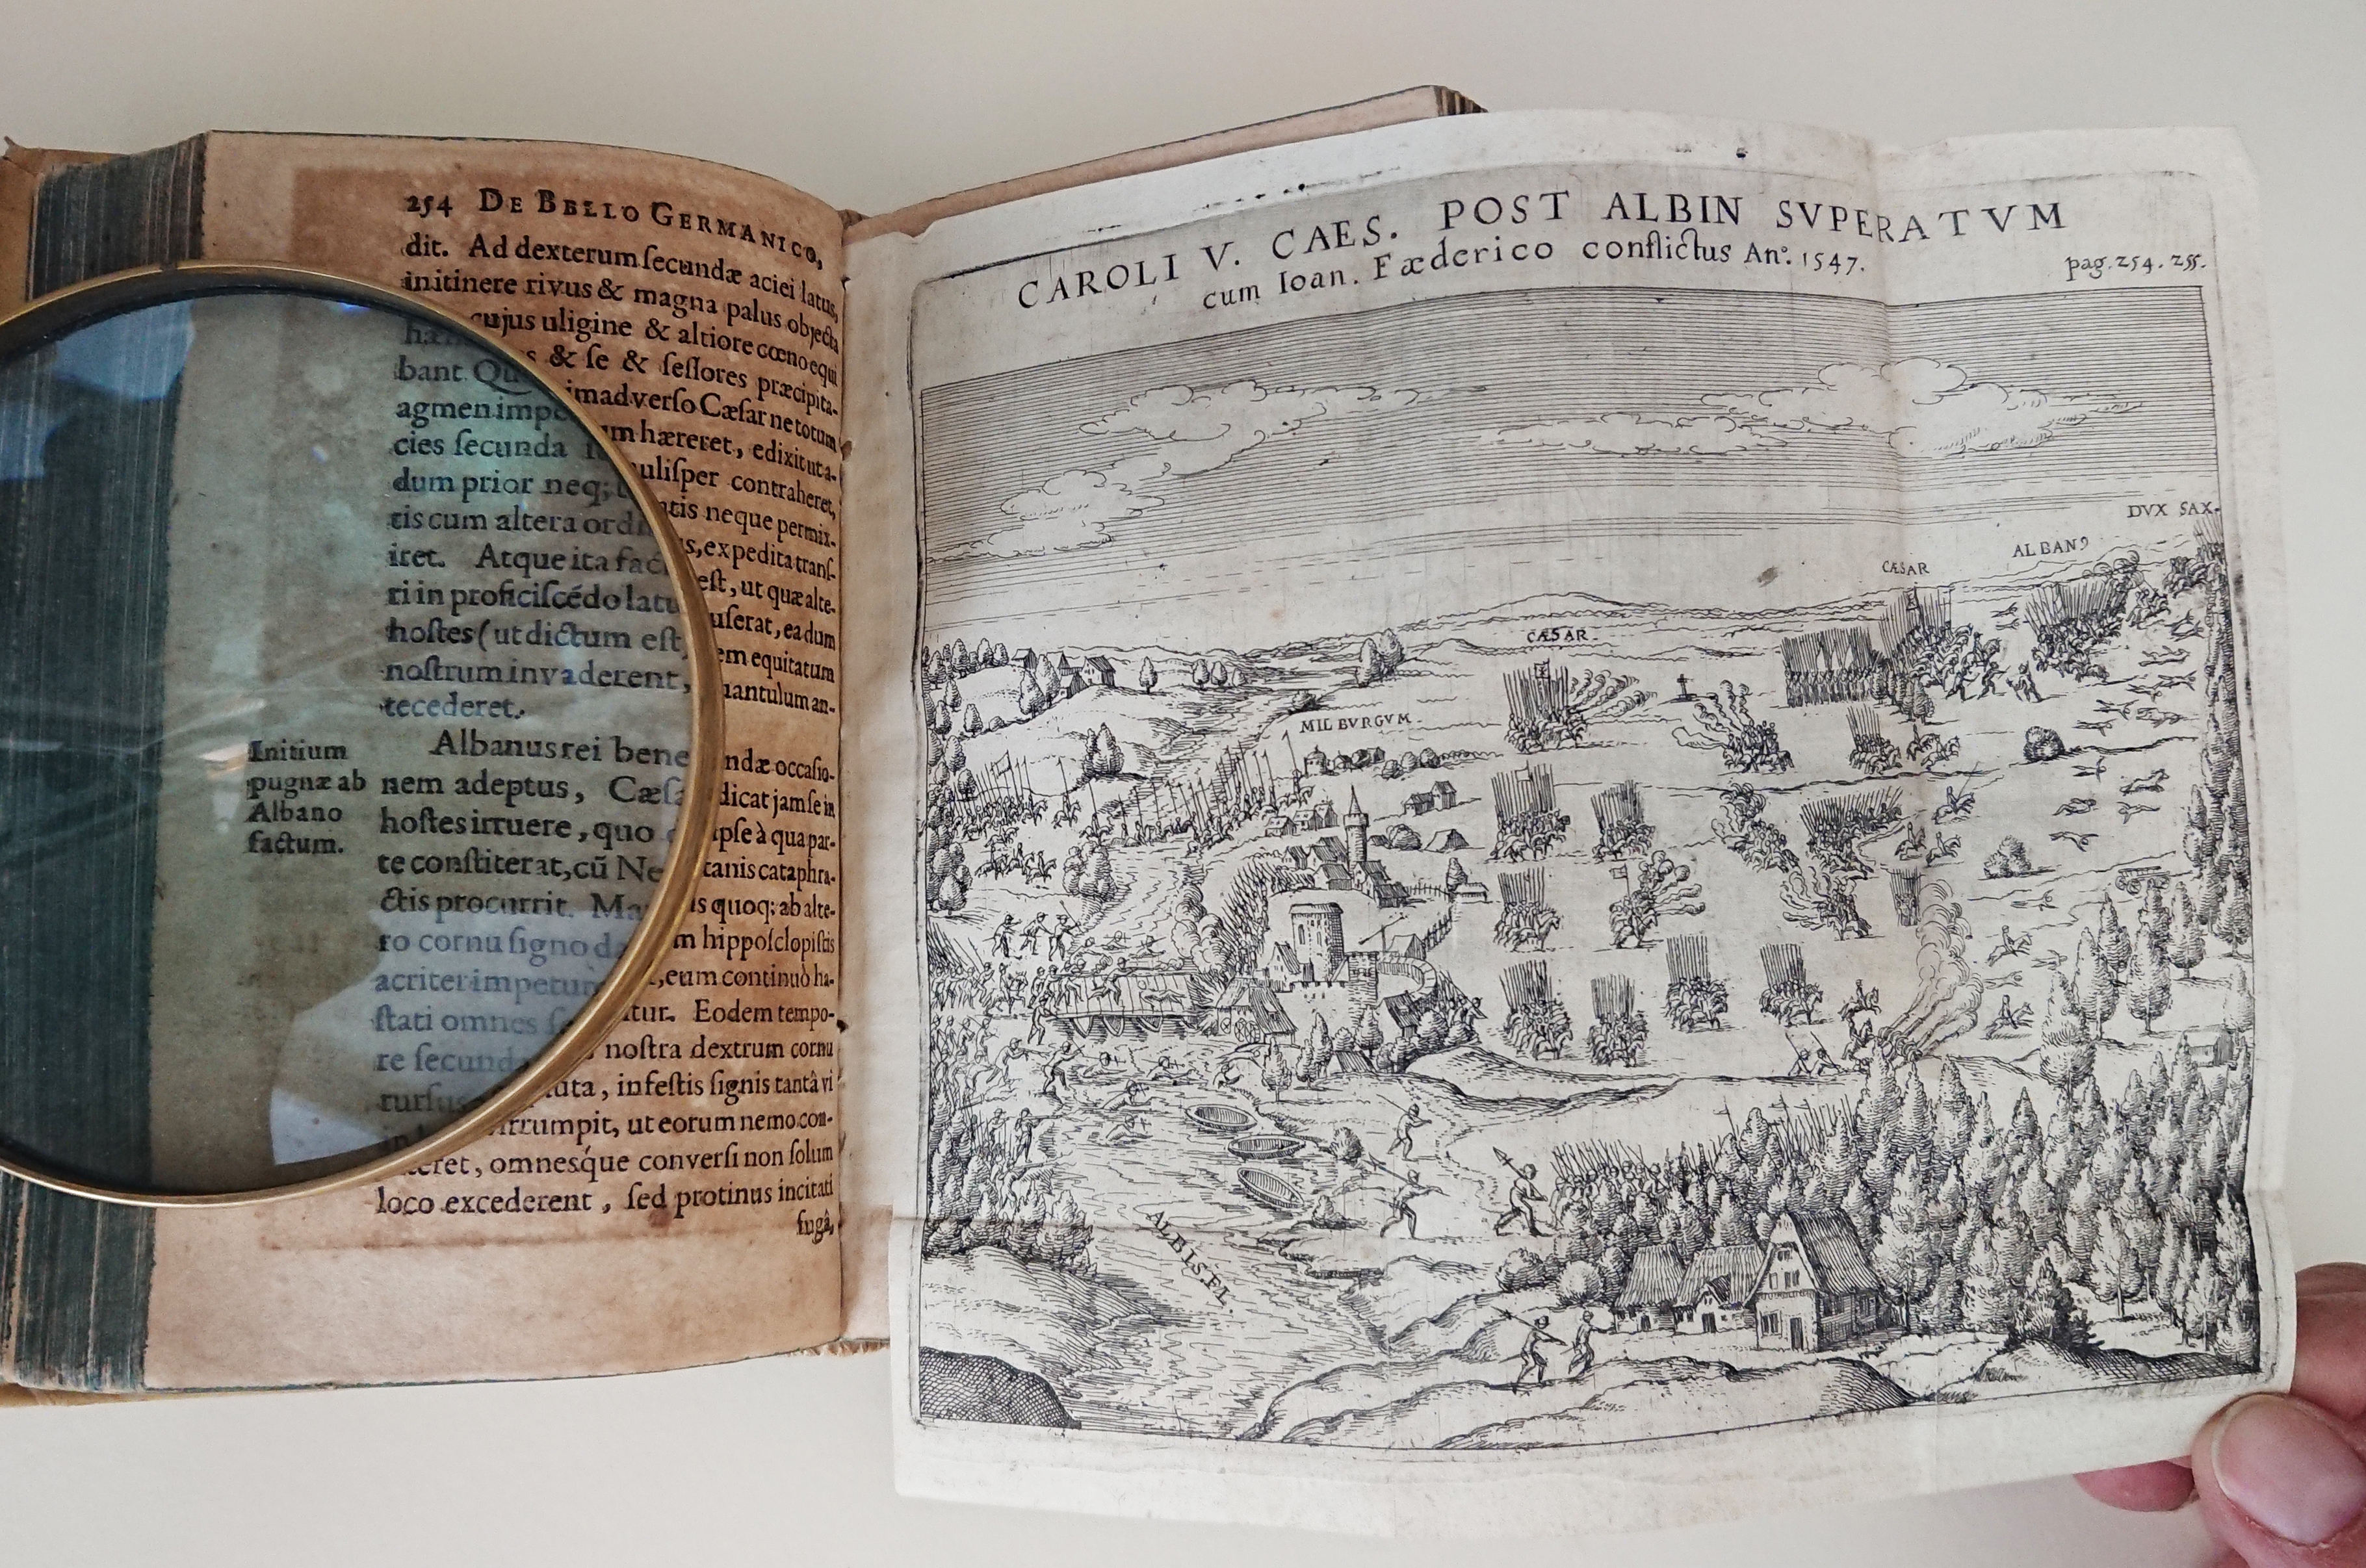 254 DE BELLO GERMANICO,
dit. Ad dexterum ſecundæ aciei latus,
in itinere rivus & magna palus objecta
cujus uligine & altiore cœno equi
& ſe & ſeſſores præcipita-
bant. imadverſo Cæſar ne totum
agmen impe um hæreret, edixit ut a-
cies ſecunda uliſper contraheret,
dum prior neq; atis neque permix-
tis cum altera ord s, expedita tranſ-
iret. Atque ita fac eſt, ut quæ alte-
ri in proficiſcédo latu uſerat, ea dum
hoſtes (ut dictum eſt) em equitatum
noſtrum invaderent, antulum an-
tecederet.
Initium
pugnæ ab
Albano
factum.
Albanus rei bene ndæ occaſio-
nem adeptus, Cæſa dicat jam ſe in
hoſtes irruere, quo ipſe à qua par-
te conſtiterat, cũ Ne tanis cataphra-
ctis procurrit. Ma is quoq; ab alte-
ro cornu ſigno da m hippoſclopiſtis
acriter impetum , eum continuò ha-
ſtati omnes tur. Eodem tempo-
re ſecunda noſtra dextrum cornu
rurſus uta, infeſtis ſignis tantâ vi
rrumpit, ut eorum nemo con-
omneſque converſi non ſolum
loco excederent, ſed protinus incitati
fugâ,
CAROLI V. CAES. POST ALBIN SVPERATVM
cum Ioan. Fæderico conflictus Anº. 1547.
pag. 254. 255.
DVX SAX.
ALBAN9
CÆSAR
CÆSAR.
MILBVRGVM.
ALBIS. FL.